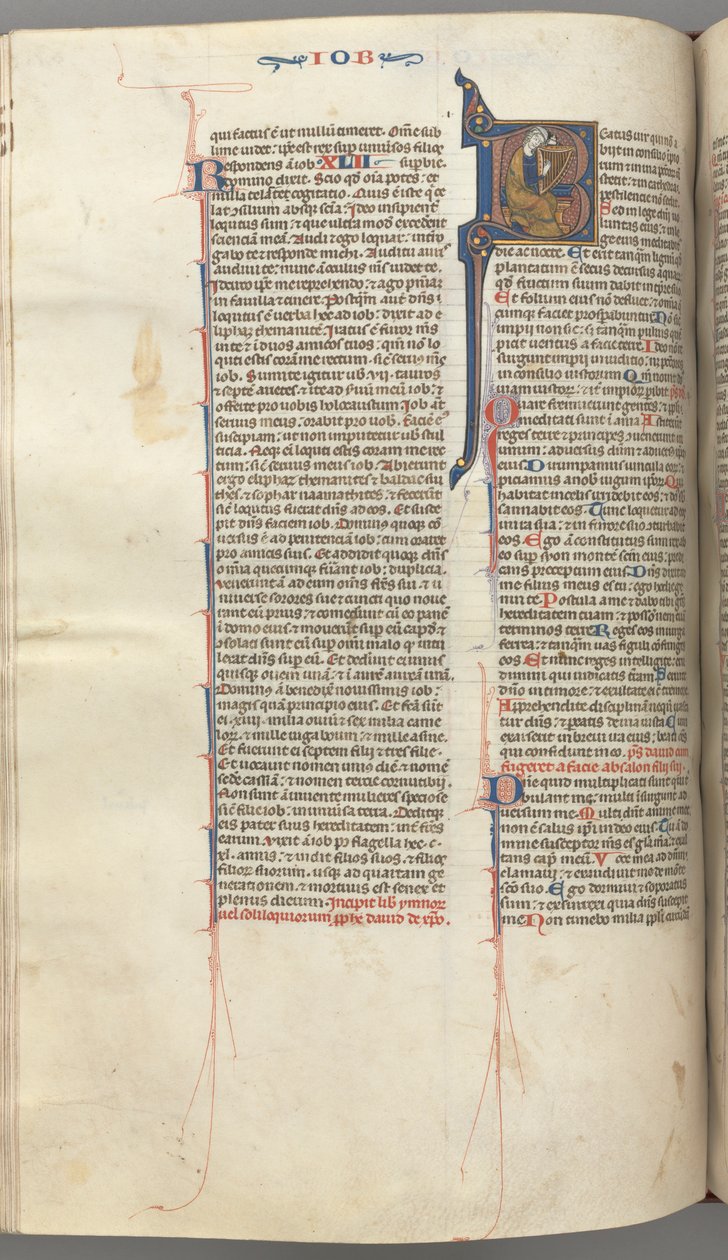 IOB
qui factus ē ut nullū timeret. Om̄e sub
lime uidet: ip̄e est rex sup uniu̾sos filios
Respondens aū iob XLII supbie.
domino dixit. Scio qd̄ oīa potes: et
nulla te latet cogitatio. Quis ē iste q̇ ce
lat ꝯsilium absq; scīa: Ideo insipient̾
locutus sum: & que ultra modū excedent
scienciā meā. Audi & ego loquar: int̾ro
gabo te & responde michi. Auditu auris
audiui te: nunc aū oculus m̄s uidet te.
Idcirco ip̄e me reprehendo: & ago pn̄iam
in fauilla & cinere. Postq̄m aut̄ dn̄s
locutus ē uerba hec ad iob: dixit ad e
liphaz themanitē: Iratus ē furor m̄s
in te & ī duos amicos tuos: qm̄ nō lo
quti estis coram me rectum. sic̄ seruus m̄s
iob. Sumite igitur uob .vii. tauros
& septē arietes: & ite ad s̾uū meū iob: &
offerte pro uobis holocaustum. Iob aūt
seruus meus: orabit pro uob. Faciē ei̾
suscipiam: ut non imputetur uob stul
ticia. Neq; eī locuti estis coram me rec
tum: sic̄ seruus meus iob. Abierunt
ergo eliphaz themanites & baldac sui
thes: & sophar naamathites: & fecerūt
sic̄ locutus fuerat dn̄s ad eos. Et susce
pit dn̄s faciem iob. Dominus quoq; cō
uersus ē ad penitenciā iob: cum oraret
pro amicis suis. Et addidit quoq; dn̄s
omīa quecunq; fu̾ant iob: duplicia.
Venerunt aū ad eum om̄s fr̄es sui. & u
niuerse sorores sue & cuncti quo noue
rant eū prius: & comederūt cū eo panē
ī domo eius: & mouerūt sup eū capud &
ꝯsolati sunt eū sup omī malo qͦ intu
lerat dn̄s sup eū. Et dederūt ei unus
quisq; ouem unā: & ī aurē aureā unā.
Dominus aū benedixit nouissimis iob:
magis quā principio eius. Et fc̄a sūt
ei .xiiii. milia ouiū & sex milia came
lorꝝ & mille iuga boum: & mille asine.
Et fuerunt ei septem filii & tres filie.
Et uocauit nomen unius diē & nomē
sc̄de cassiā: & nomen tercie cornutibii.
Non sunt aū inuente mulieres speciose
sic̄ filie iob: in uniu̾sa terra. Deditq;
eis pater suus hereditatem: int̾ fr̄es
earum. Vixit aū iob pꝰ flagella hec .c.
xl. annis: & uidit filios suos: & filios
filiorū suorum. usq; ad quartam ge
nerationem: & mortuus est senex et
plenus dierum. Incipit lib̄ ymnorꝝ
uel soliloquiorum ꝓphe dauid de xp̄o.
Beatus uir qui nō a
biit in consilio īpio
rum & in uia pctōrꝝ nō
stetit: & in cathedra
pestilencie nō sedit.
Sed in lege dn̄i uo
luntas eius: & in le
ge eius meditabit̾
die ac nocte. Et erit tanq̄m lignū qd̄
plantatum ē secus decursus aquarꝝ
qd̄ fructum suum dabit in tp̄re suo.
Et folium eius nō defluet: & omīa q̄
cumq; faciet prosp̾abuntur. Nō sic
impii non sic: sꝫ tanq̄m puluis quē
picit uentus a facie terre. Ideo nō re
surgunt impii in iudicio: neq; pctōres
in consilio iustorum. Qm̄ nouit dn̄s
uiam iustorꝝ: & it̾ impiorꝝ pibit.
Quare fremuerunt gentes: & ppl̄i
meditati sunt inania. Astiterūt
reges terre & principes ꝯuenerunt in
unum: aduersus dn̄m & adu̾sus xp̄m
eius. Dirumpamus uincula eorꝝ: &
piciamus a nob̄ iugum ip̄orꝝ. Qui
habitat in celis irridebit eos: & dn̄s sub
sannabit eos. Tunc loquetur ad eos
in ira sua: & in furore suo ꝯturbabit
eos. Ego aū constitutus sum rex ab
eo sup syon montē scm̄ eius: predi
cans preceptum eius. Dn̄s dixit ad
me filius meus es tu: ego hodie ge
nui te. Postula a me & dabo tibi gētes
hereditatem tuam: & possessionem tuā
terminos terre. Reges eos in uirga
ferrea: & tanq̄m uas figuli cōfringes
eos. Et nunc reges intelligite: eru
dimini qui iudicatis t̾ram. Seruite
dn̄o in timore: & exultate ei cū tremore.
Apprehendite disciplinā nequā irasca
tur dn̄s: & peatis de uia iusta. Cum
exarserit in breui ira eius: beati om̄s
qui confidunt in eo. ps̄ dauid cum
fugeret a facie absalon filii sui.
Dn̄e quid multiplicati sunt qui t̾
bulant me: multi īsurgunt ad
uersum me. Multi dn̄t anime mee:
non ē salus ip̄i in deo eius. Tu aū do
mine susceptor m̄s es gl̄ia m̄a: & exal
tans cap̄ meū. Voce mea ad dn̄m
clamaui: & exaudiuit me de mōte
scō suo. Ego dormiui & soporatus
sum: & exsurrexi quia dn̄s suscepit
me. Non timebo milia ppl̄i circūdā